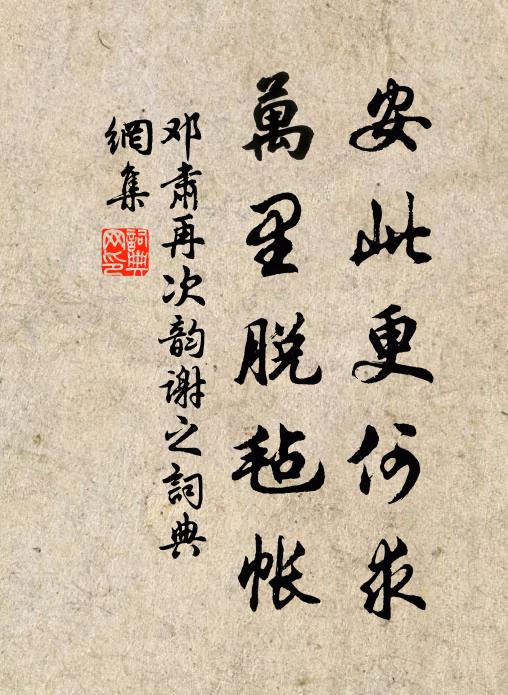 安此更何求
萬里脱毡帐
邓肃再次韵谢之詞典
網集
詞典网印